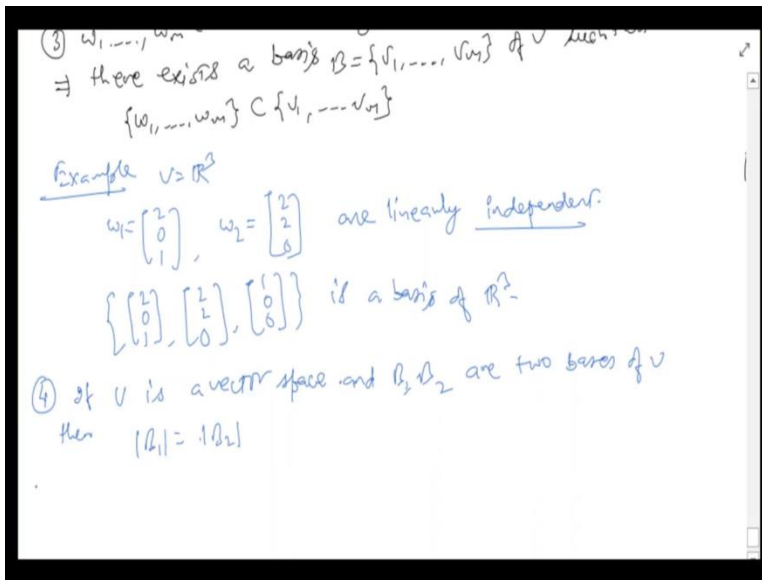 ③ w₁,...., wₘ
⇒ there exists a basis B = {v₁,...., vₘ} of V such
{w₁,...., wₘ} ⊂ {v₁, ---- vₘ}
Example V = ℝ³
w₁ = [2 0 1], w₂ = [2 2 0] are linearly independent.
{[2 0 1], [2 2 0], [1 0 0]} is a basis of ℝ³.
④ If V is a vector space and B₁, B₂ are two bases of V
then |B₁| = |B₂|